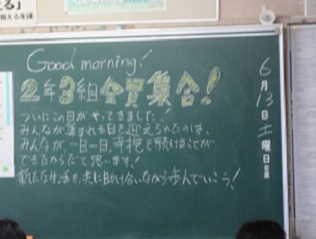 Good morning!
2年3組全員集合!
ついにこの日がやってきました!
みんなが集まれる日を迎えられたのは、
みんなが、一日一日、我慢を続けることが
できたからだと思います!
新たな生活を、共に助け合いながら歩んでいこう!
6月13日土曜日